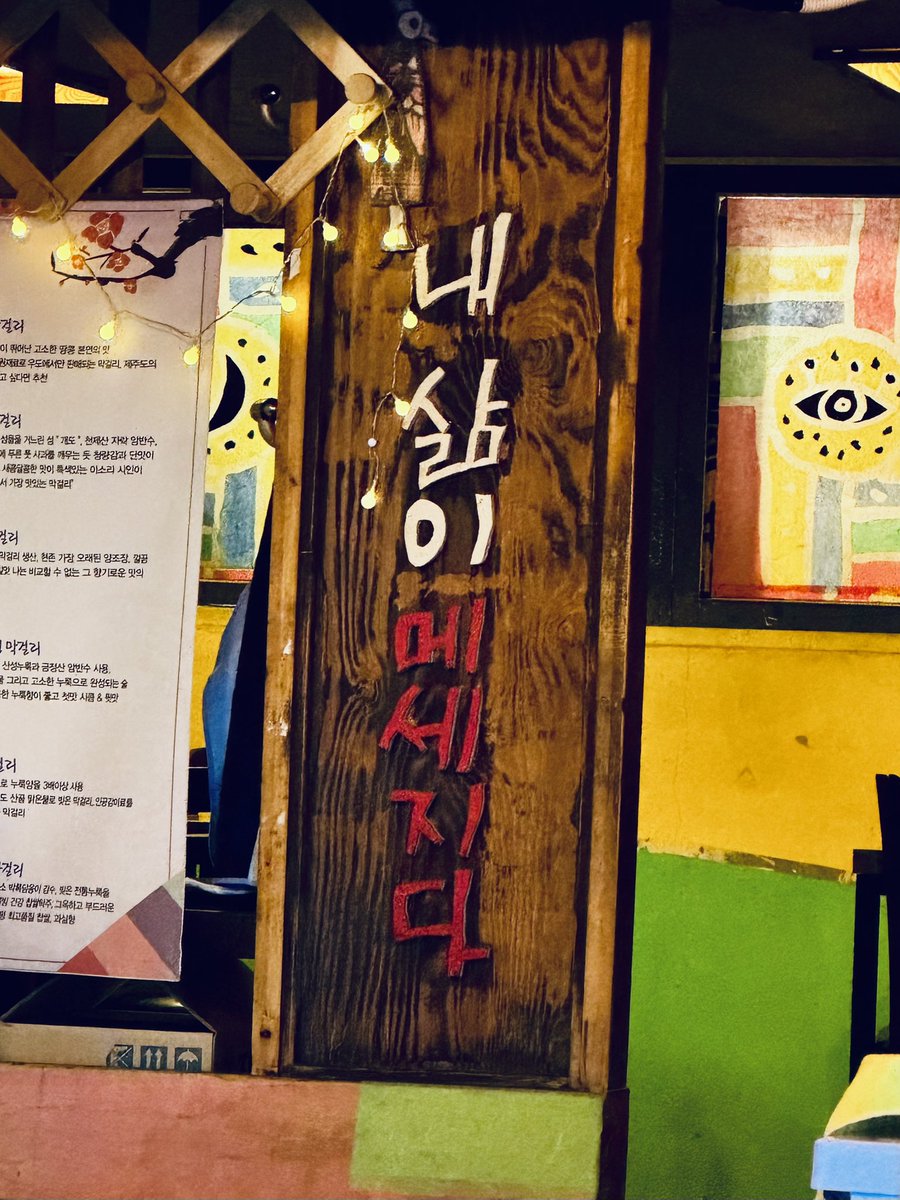 걸리
이 뛰어난 고소한 땅콩 본연의 맛
원재료로 우도에서만 판매되는 막걸리. 제주도의
고 싶다면 추천
걸리
섬들을 거느린 섬 " 개도 ", 천제산 자락 암반수,
에 푸른 풋 사과를 깨무는 듯 청량감과 단맛이
새콤달콤한 맛이 특색있는 이소리 시인이
서 가장 맛있는 막걸리"
걸리
막걸리 생산, 현존 가장 오래된 양조장,
나는 비교할 수 없는 그 향기로운 맛의
막걸리
산성누룩과 금정산 암반수 사용,
그리고 고소한 누룩으로 완성되는 술
한 누룩향이 좋고 첫맛 시큼 & 뒷맛
걸리
로 누룩양을 3배이상 사용
도 산골 맑은물로 빚은 막걸리, 인공감미료를
막걸리
걸리
소 막복담옹이 감수, 빚은 전통누룩을
건강 찹쌀탁주, 그윽하고 부드러운
최고품질 찹쌀, 과실향
내
삶
이
메
세
지
다